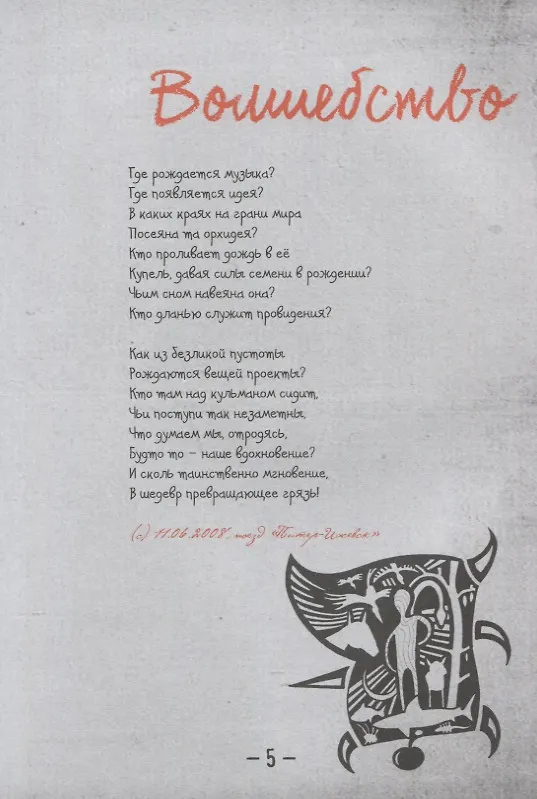 Волшебство
Где рождается музыка?
Где появляется идея?
В каких краях на грани мира
Посеяна та орхидея?
Кто проливает дождь в её
Купель, давая силы семени в рождении?
Чьим сном навеяна она?
Кто дланью служит провидения?
Как из безликой пустоты
Рождаются вещей проекты?
Кто там над кульманом сидит,
Чьи поступи так незаметны,
Что думаем мы, отродясь,
Будто то – наше вдохновение?
И сколь таинственно мгновение,
В шедевр превращающее грязь!
(с) 11.06.2008, поезд «Питер-Ижевск»
– 5 –